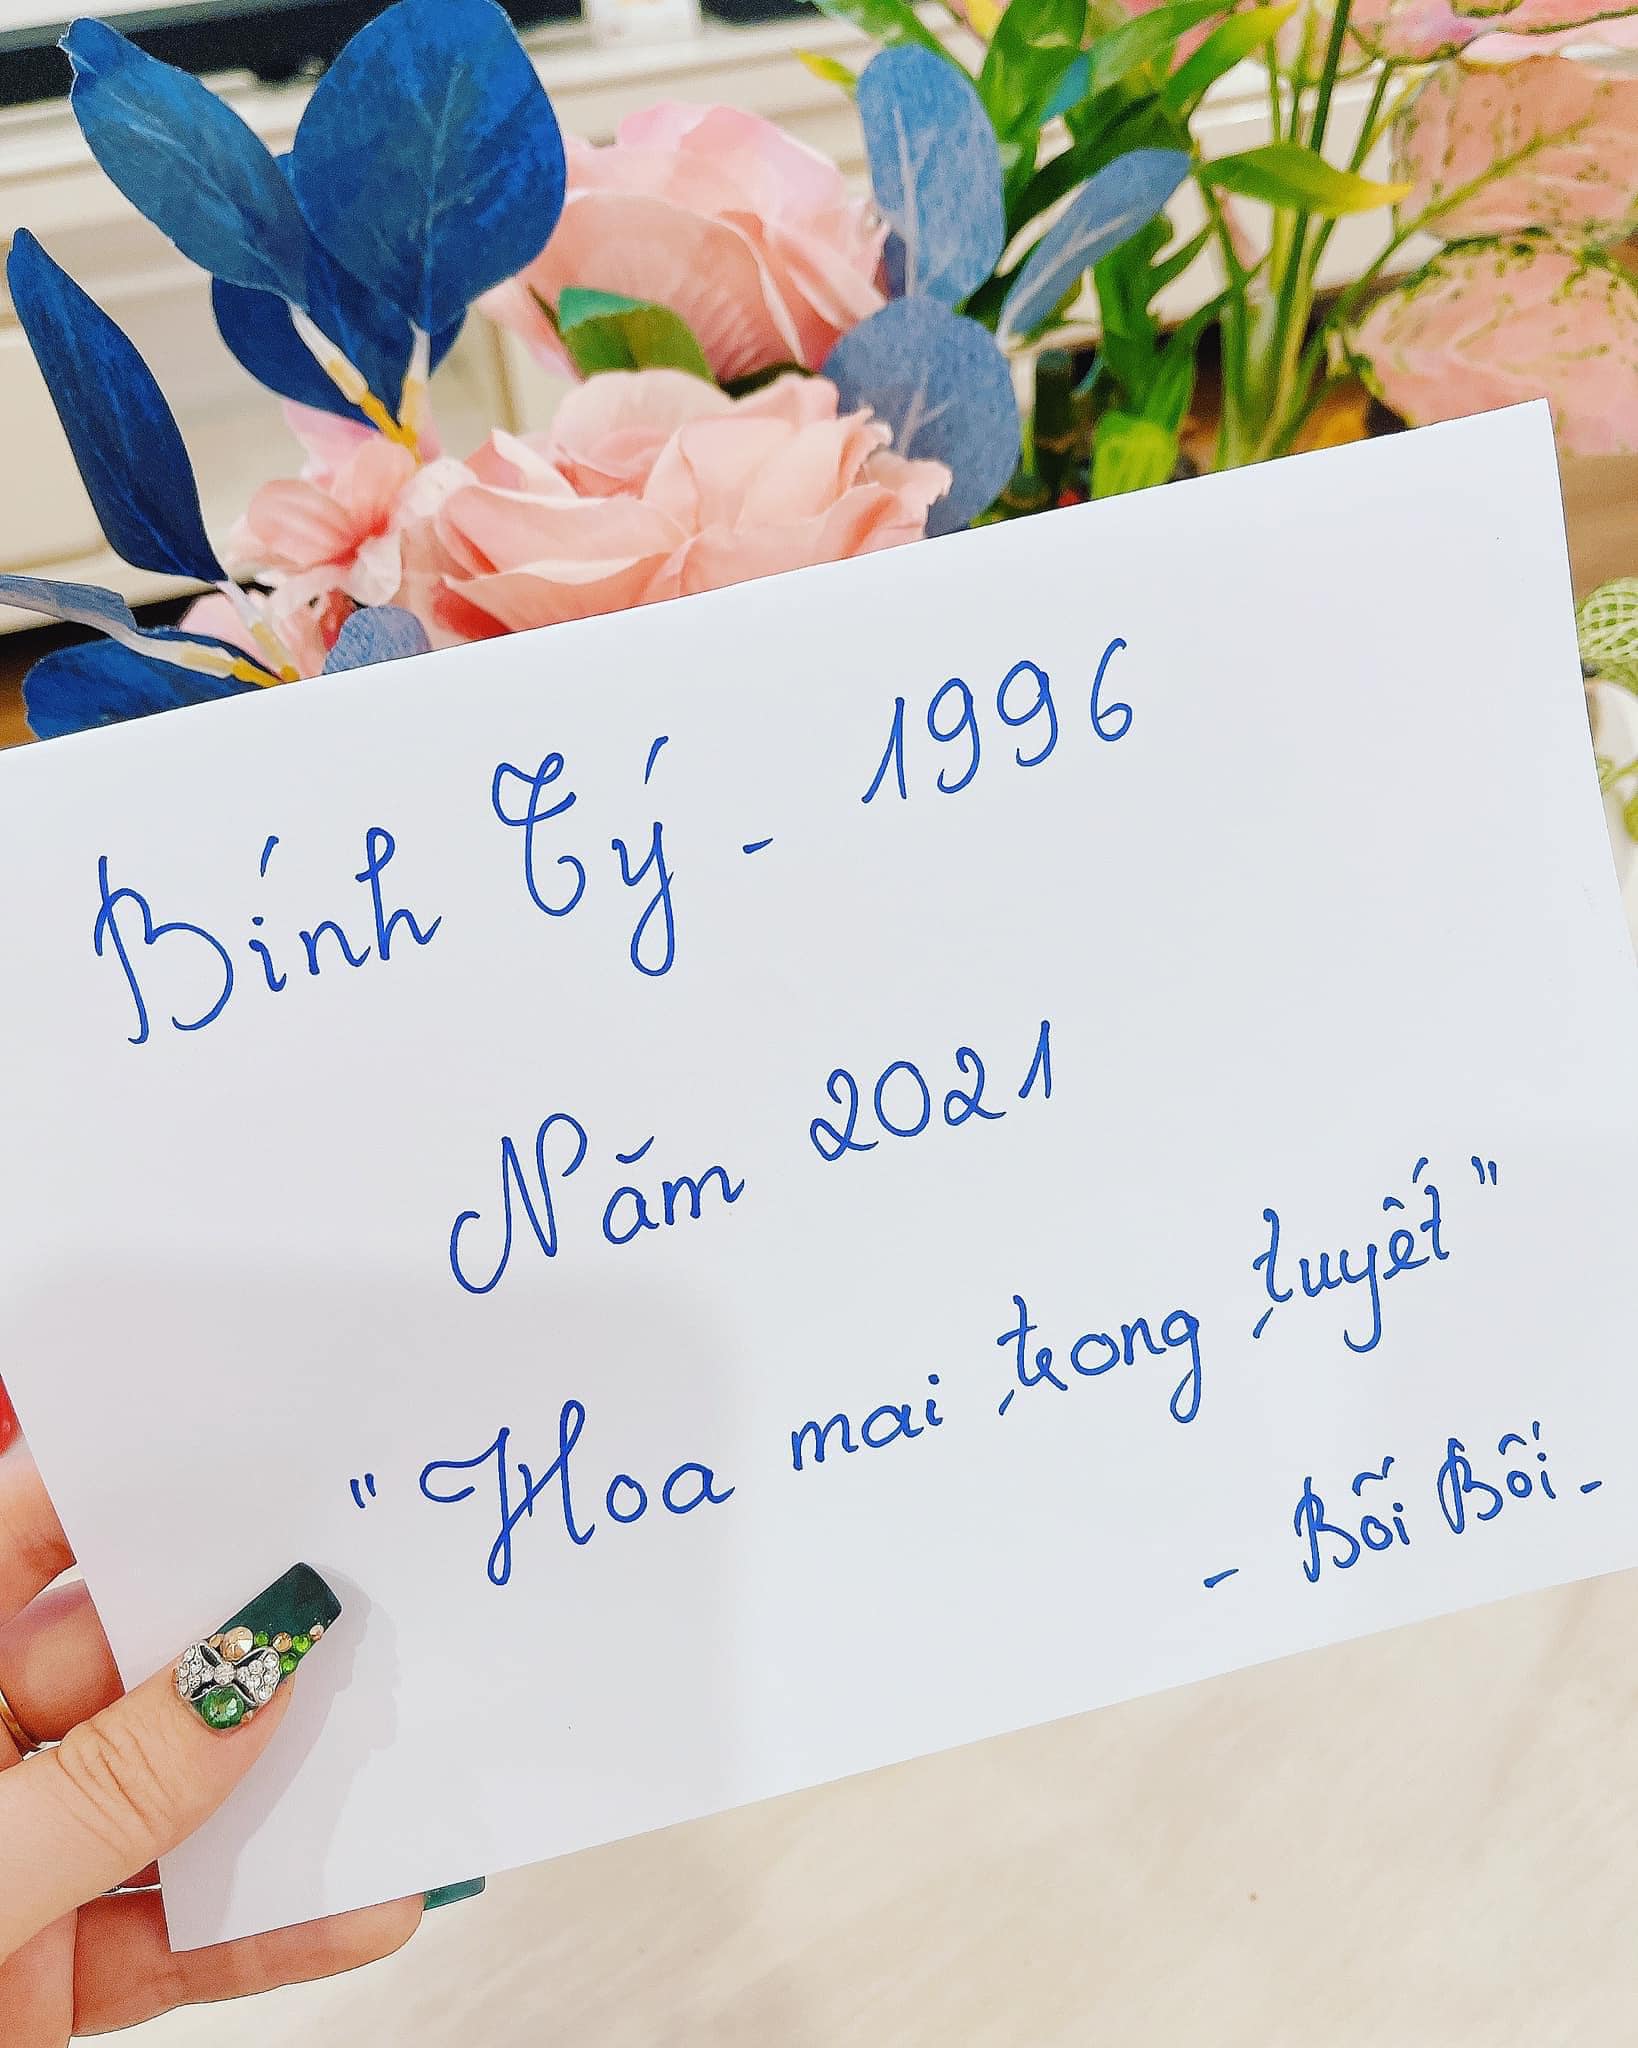 Bính Tý - 1996
Năm 2021
"Hoa mai trong tuyết"
- Bối Bối -